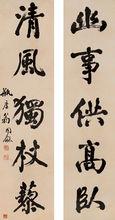 幽事供高臥
清風獨杖藜
翁同龢